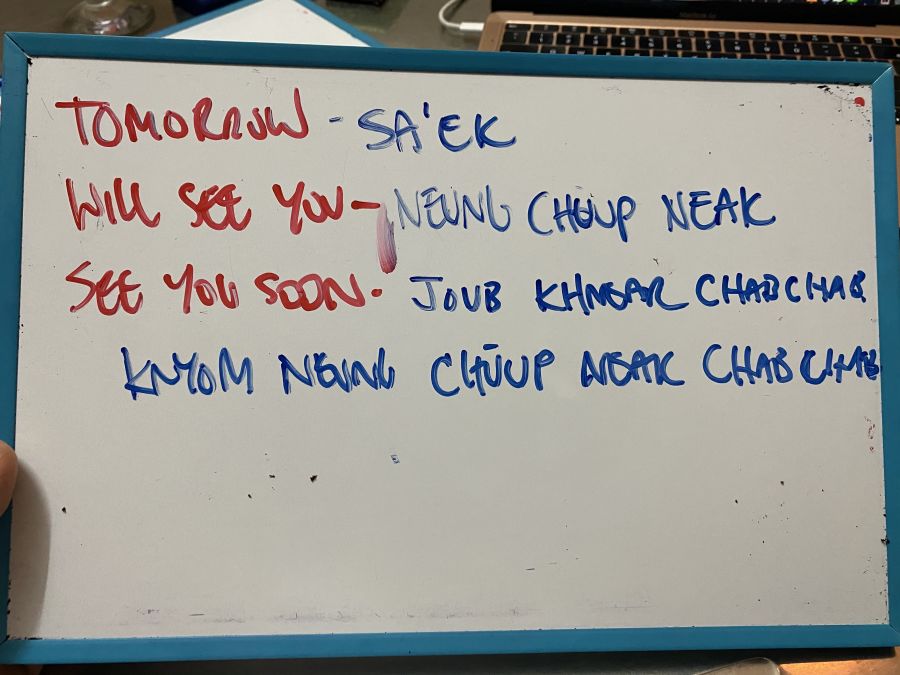 TOMORROW - SA'EK
WILL SEE YOU - NEUNG CHUUP NEAK
SEE YOU SOON. JOUB KHNEAR CHABCHAB
KNYOM NEUNG CHUUP NEAK CHABCHAB